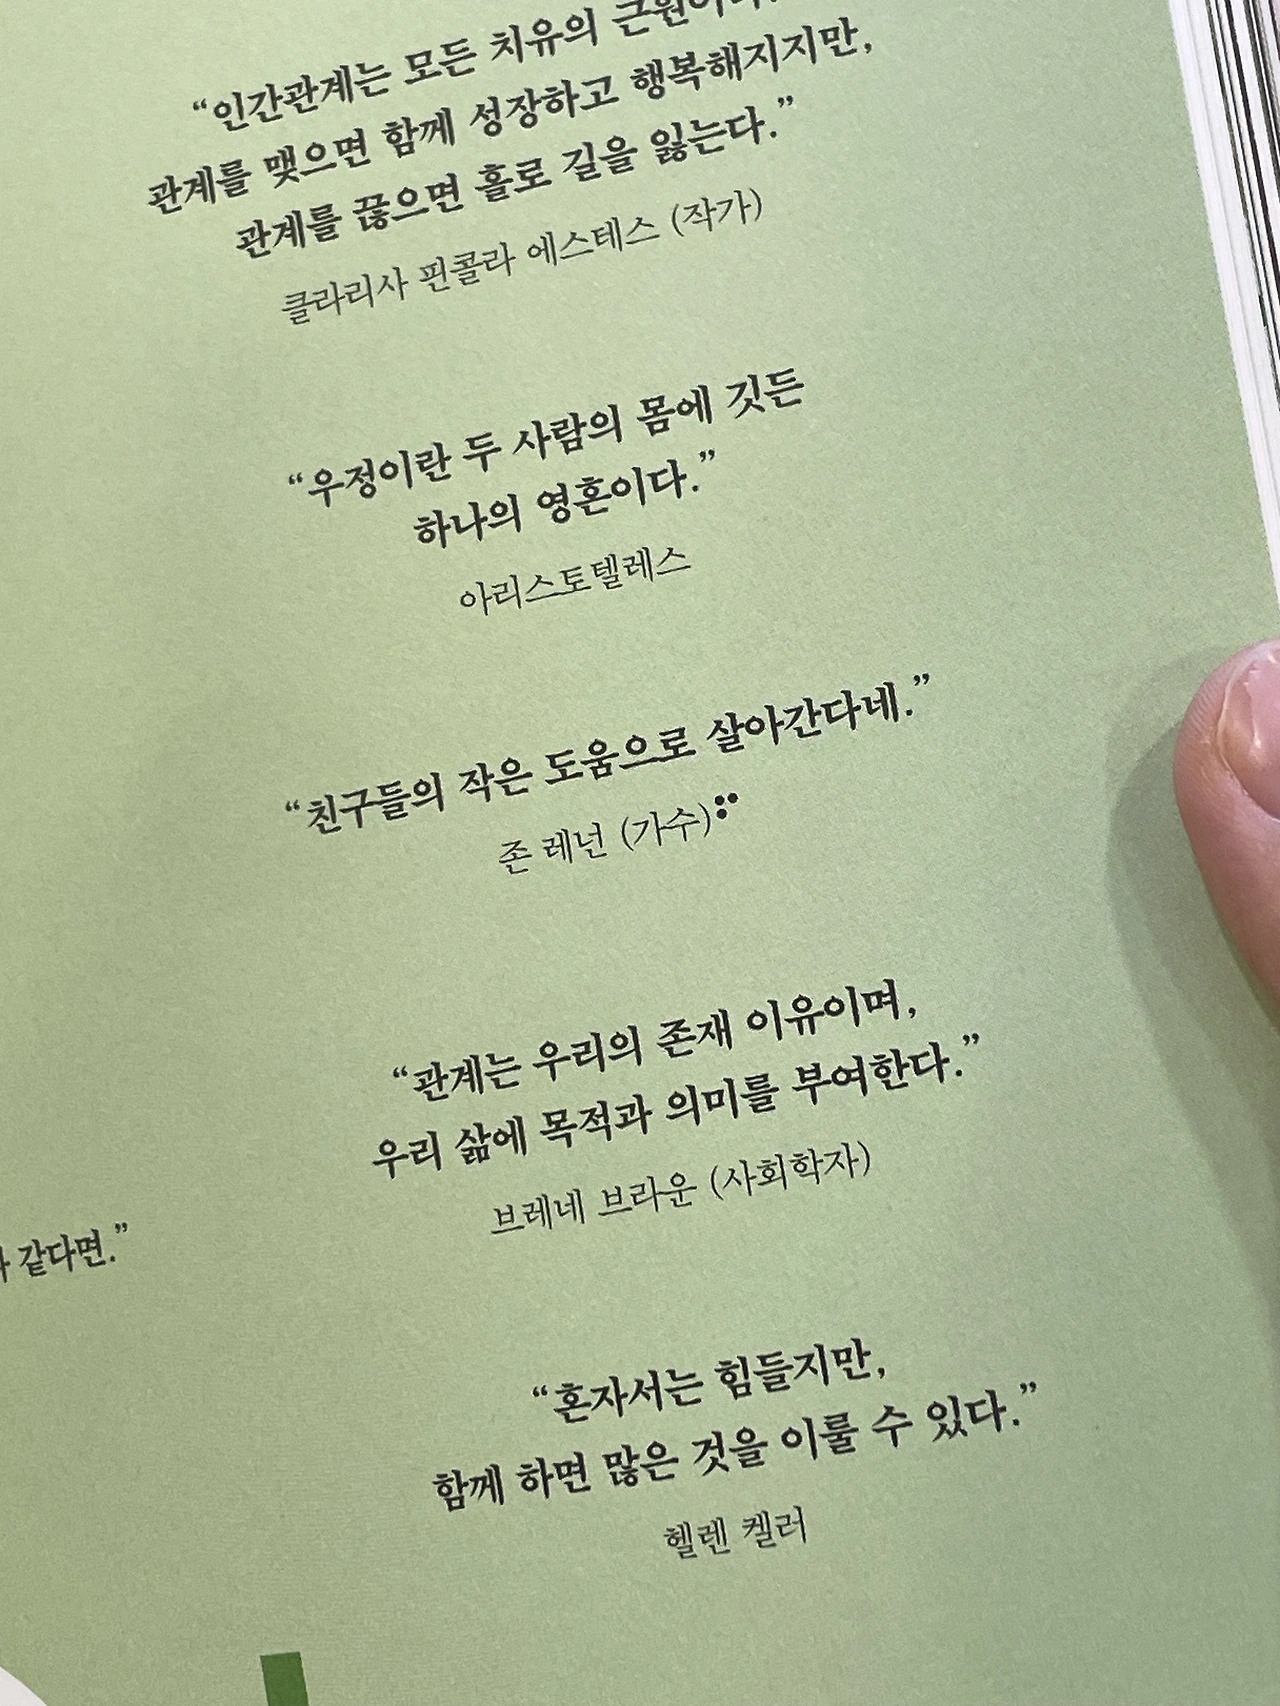 “인간관계는 모든 치유의 근원이다.
관계를 맺으면 함께 성장하고 행복해지지만,
관계를 끊으면 홀로 길을 잃는다.”
클라리사 핀콜라 에스테스 (작가)
“우정이란 두 사람의 몸에 깃든
하나의 영혼이다.”
아리스토텔레스
“친구들의 작은 도움으로 살아간다네.”
존 레넌 (가수)
“관계는 우리의 존재 이유이며,
우리 삶에 목적과 의미를 부여한다.”
브레네 브라운 (사회학자)
같다면.”
“혼자서는 힘들지만,
함께 하면 많은 것을 이룰 수 있다.”
헬렌 켈러